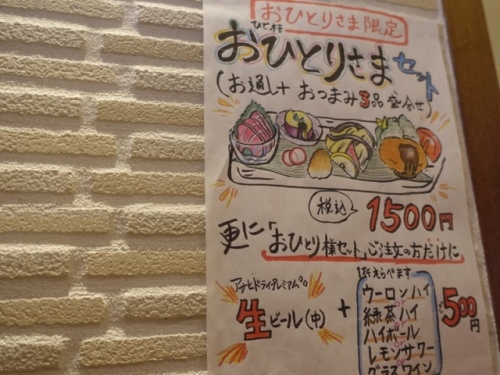 おひとりさま限定
おひとりさま
セット
(お通し+おつまみ3品盛合せ)
税込 1500円
更に「おひとり様セット」ご注文の方だけに
アサヒドライプレミアム
生ビール(中)
+
1杯えらべます
ウーロンハイ
緑茶ハイ
ハイボール
レモンサワー
グラスワイン
で500円